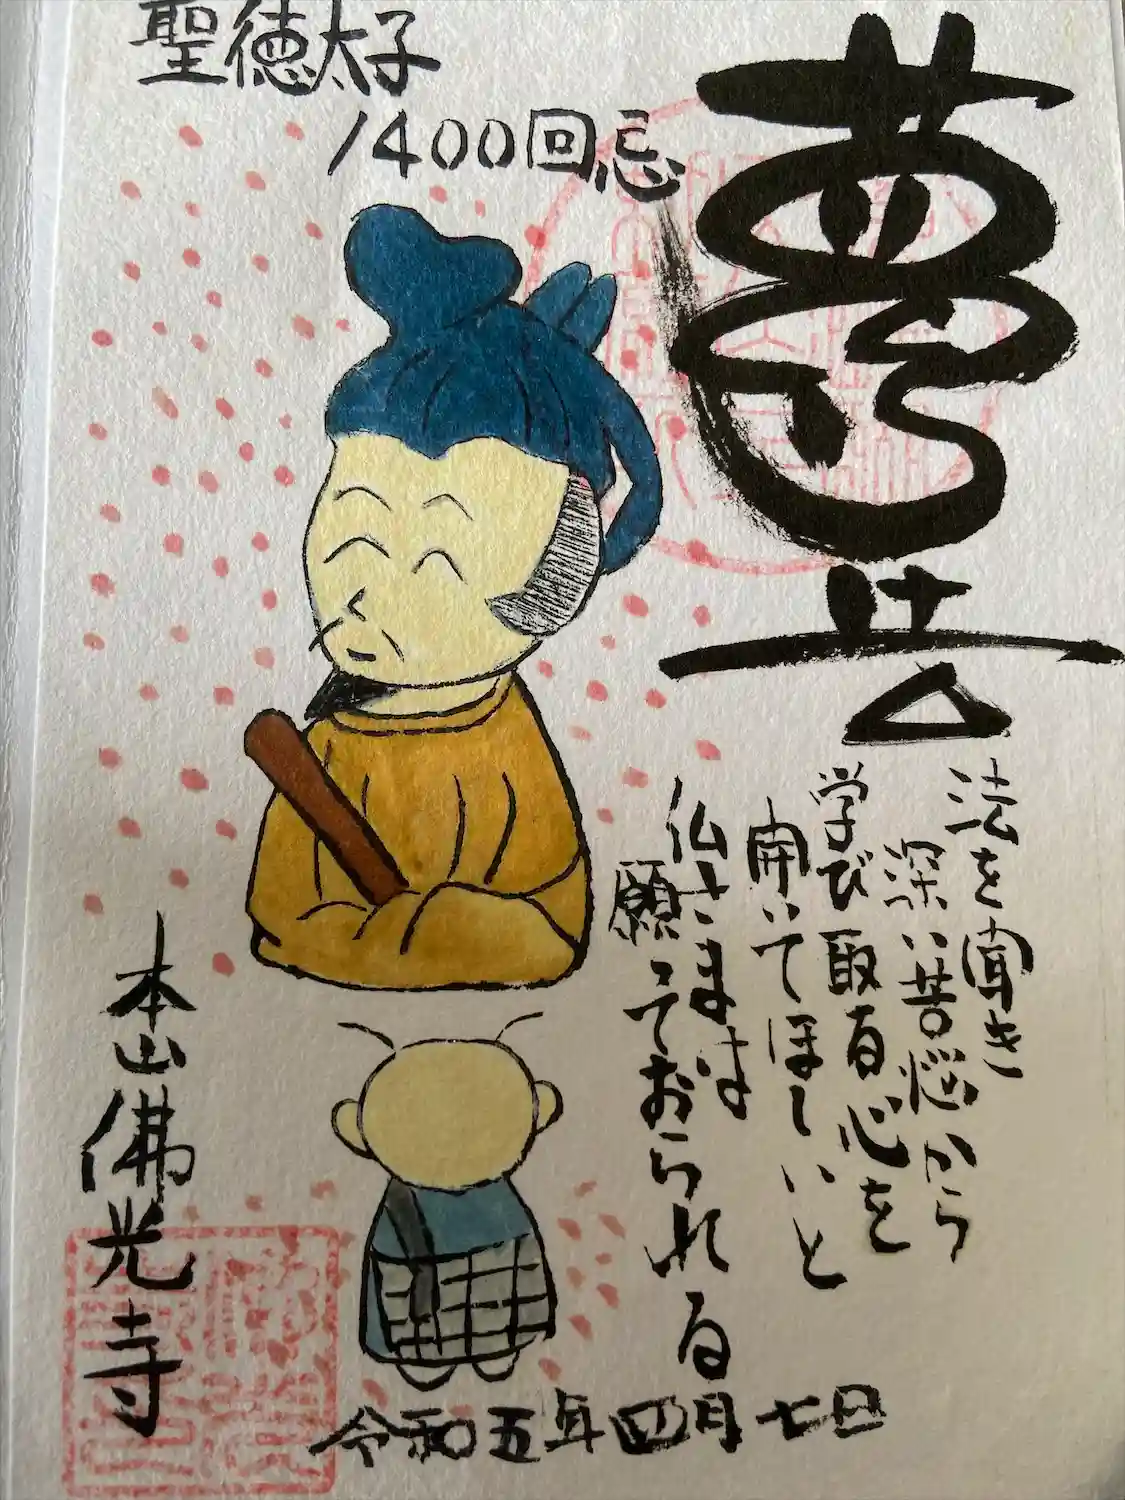 聖徳太子
1400回忌
夢
法を聞き
深い苦悩から
学び取る心を
開いてほしいと
仏さまは
願っておられる
本山佛光寺
令和五年四月七日